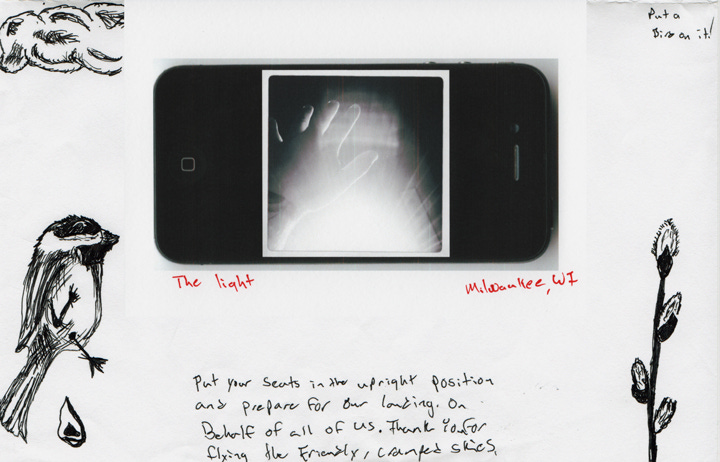 Put a
Bird on it!
The light
Milwaukee, WI
Put your seats in the upright position
and prepare for our landing. On
Behalf of all of us. Thank You for
flying the Friendly, cramped skies.